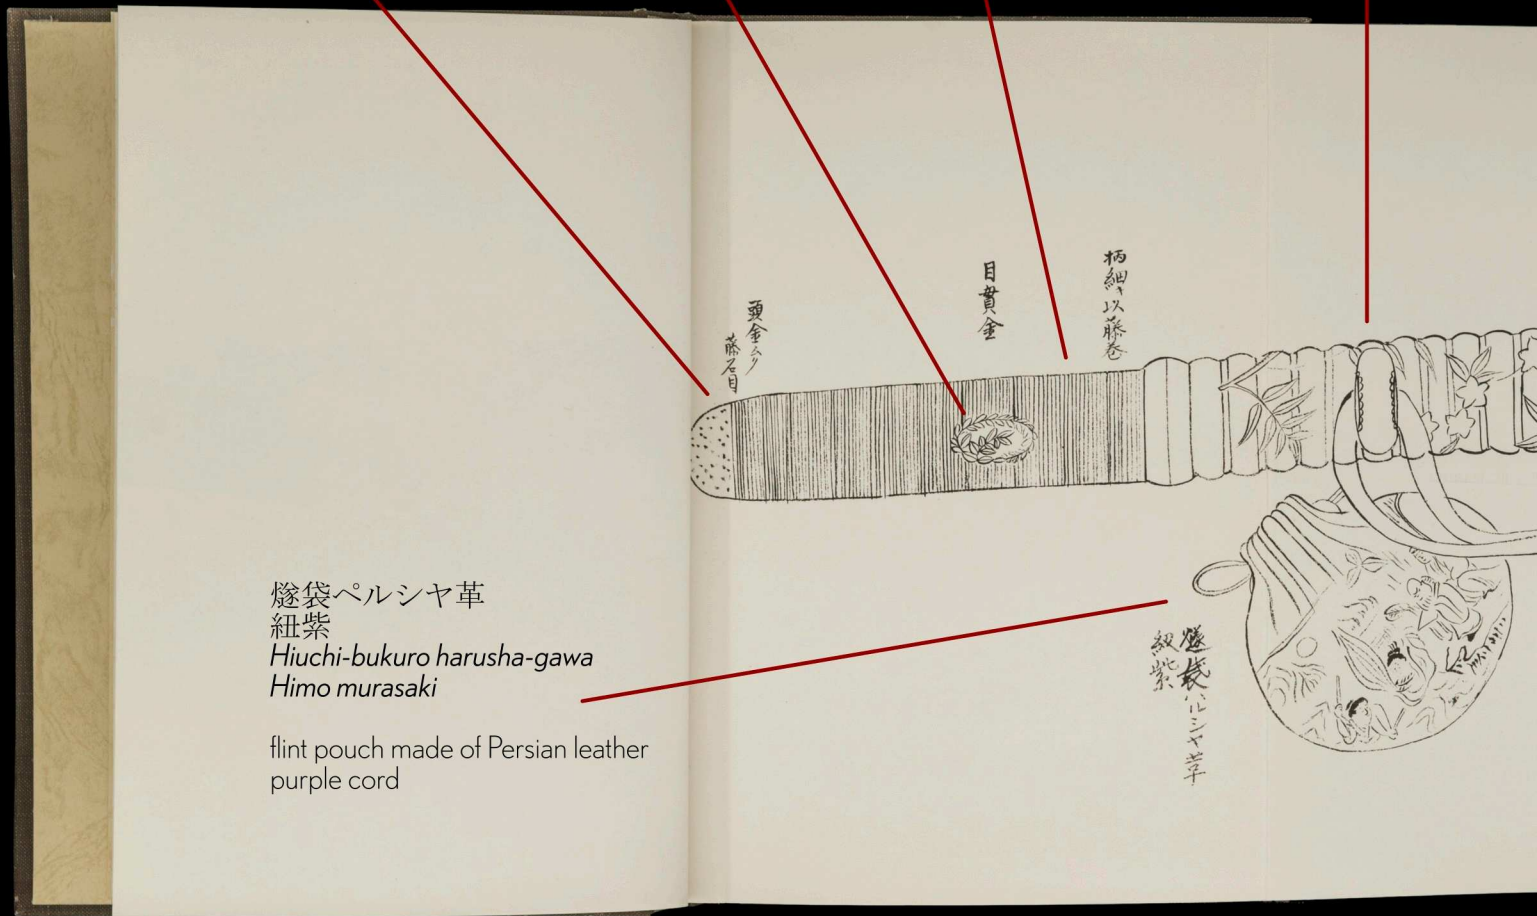 頭金ムク
藤石目
目貫金
柄細ク以藤巻
燧袋ペルシヤ革
紐紫
Hiuchi-bukuro harusha-gawa
Himo murasaki
flint pouch made of Persian leather
purple cord
燧袋ハルシヤ革
紐紫